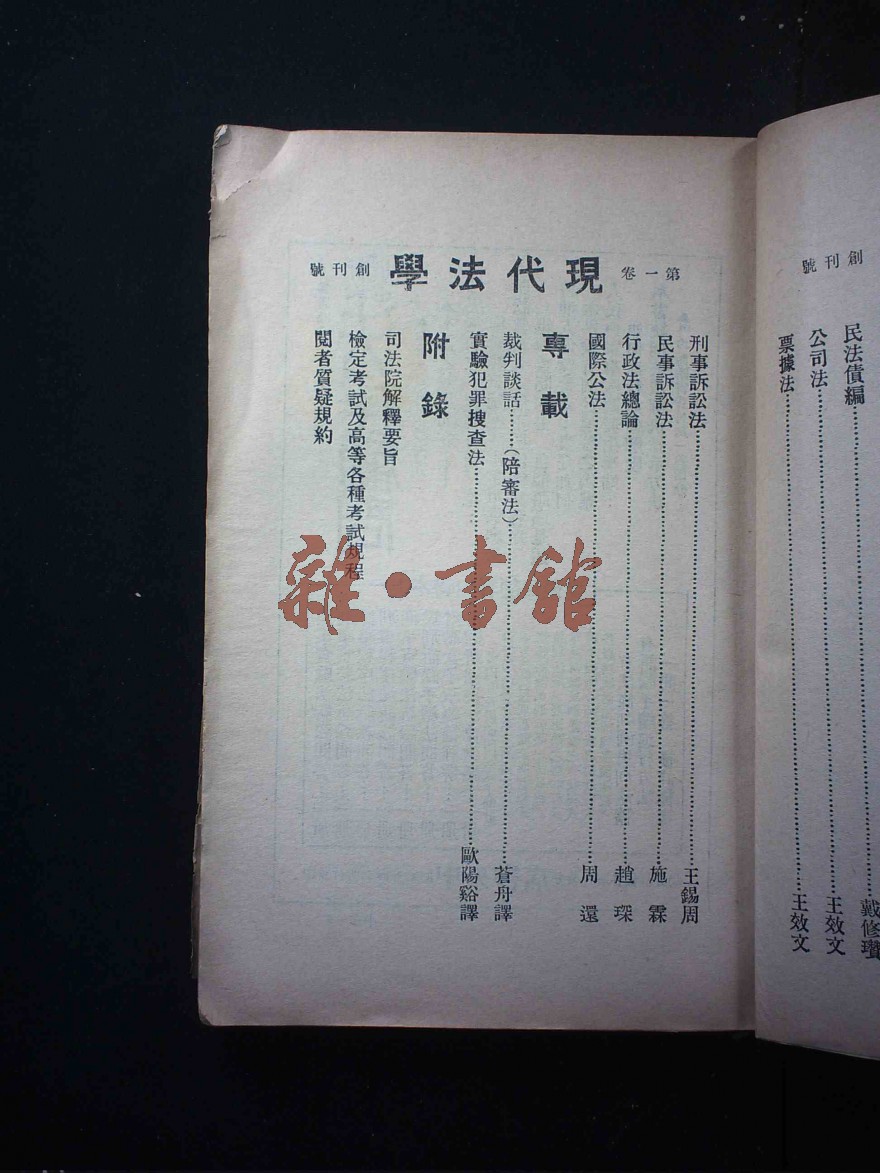 創刊號
民法債編 戴修瓚
公司法 王效文
票據法 王效文
第一卷 現代法學 創刊號
刑事訴訟法 王錫周
民事訴訟法 施霖
行政法總論 趙琛
國際公法 周還
專載
裁判談話……(陪審法) 蒼舟譯
實驗犯罪搜查法 歐陽谿譯
附錄
司法院解釋要旨
檢定考試及高等各種考試規程
閱者質疑規約
雜·書館